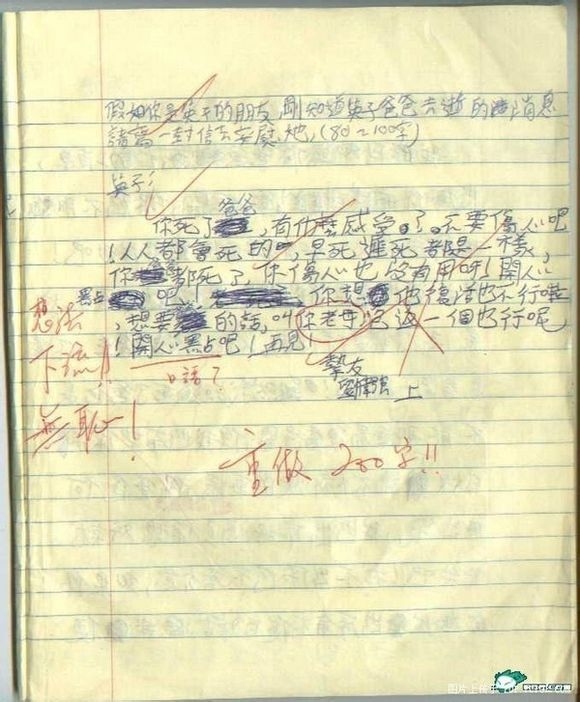 假如你是英子的朋友,剛知道英子爸爸去逝的消息
請寫一封信去安慰她,(80~100字)
英子:
爸爸
你死了,有什麼感受。了。不要傷心吧
!人人都會死的,早死遲死都是一樣,
你都死了,你傷心也沒有用呀!開心
點吧!你想他復活也不行啦
,想要的話,叫你老母再一個也行呢
!開心點吧!再見!
摯友
上
想法
下流!!
無恥!
口語?
重做 200字!!